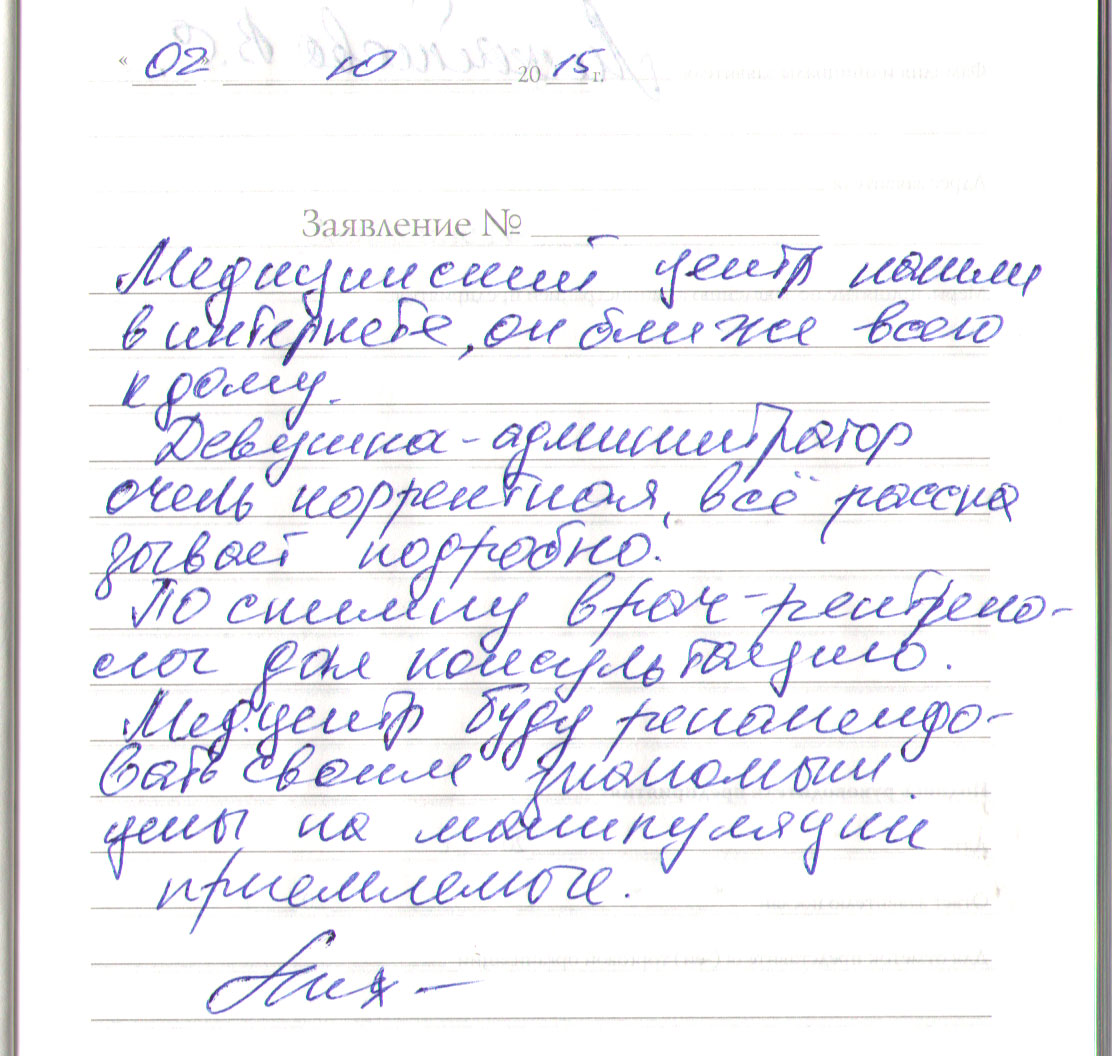 « 02 » 10 2015 г.
Заявление №
Медицинский центр нашли
в интернете, он ближе всего
к дому.
Девушка-администратор
очень корректная, всё расска
зывает подробно.
По снимку врач-рентгено-
лог дал консультацию.
Мед.центр буду рекомендо-
вать своим знакомым
цены на манипуляции
приемлемые.